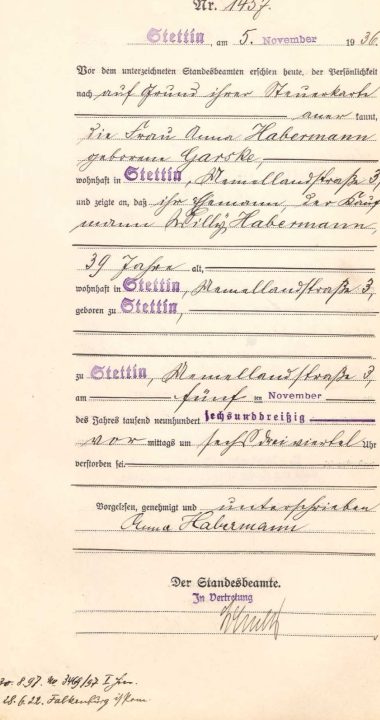 Nr. 1457.
Stettin, am 5. November 1936.
Vor dem unterzeichneten Standesbeamten erschien heute, der Persönlichkeit
nach auf Grund ihrer Steuerkarte
anerkannt,
die Frau Anna Habermann
geborene Garske,
wohnhaft in Stettin, Memellandstraße 3,
und zeigte an, daß ihr Ehemann, der Kauf-
mann Willy Habermann,
39 Jahre alt,
wohnhaft in Stettin, Memellandstraße 3,
geboren zu Stettin,
zu Stettin, Memellandstraße 3,
am fünf ten November
des Jahres tausend neunhundert sechsunddreißig
vor mittags um sechs dreiviertel Uhr
verstorben sei.
Vorgelesen, genehmigt und unterschrieben
Anna Habermann
Der Standesbeamte.
In Vertretung
8.97.
28.6.22. Falkenburg i/Pom.